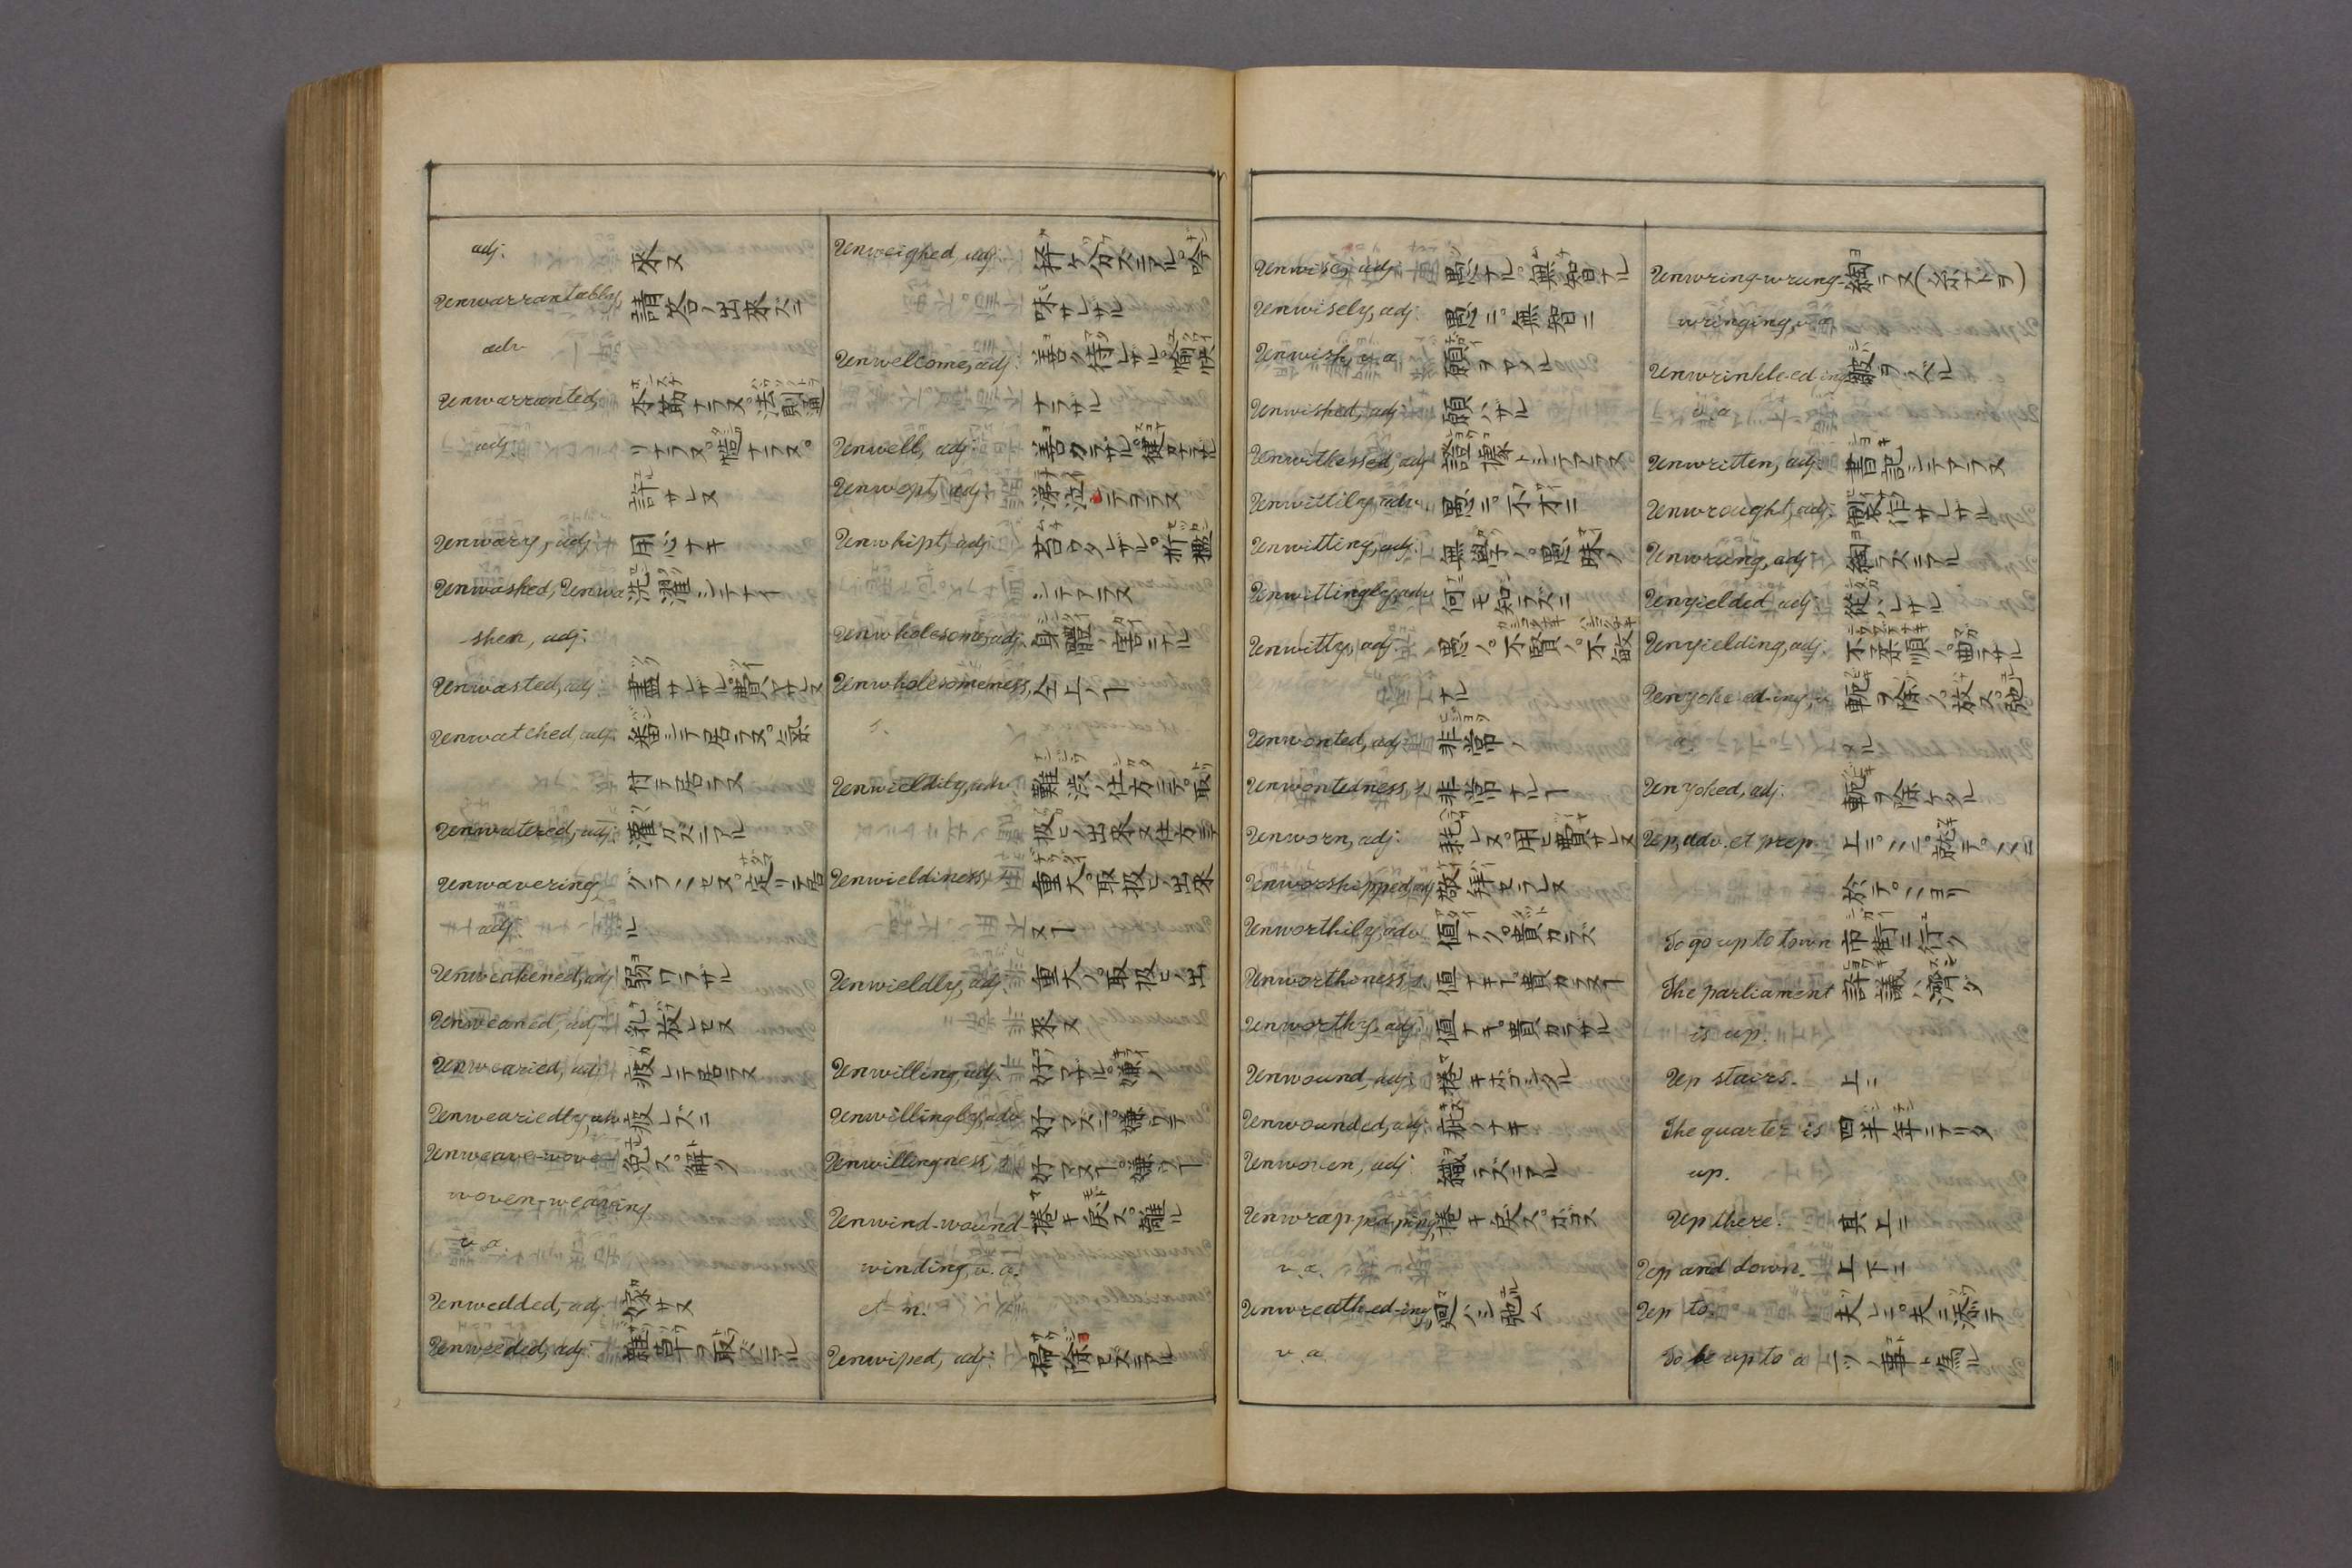 adj. 来ヌ
Unwarrantably, 請合ノ出来ズニ
adv.
Unwarranted, 本筋ナラヌ。法則通
adj. リナラヌ。慥ナラヌ。
許サレヌ
Unwary, adj. 用心ナキ
Unwashed, Unwa 洗濯シテナイ
-shen, adj.
Unwasted, adj. 盡サレザル。費ヤサレヌ
Unwatched, adj. 番シテ居ラヌ。氣
付テ居ラヌ
Unwatered, adj. 灌ガズニアル
Unwavering, グラ〳〵セヌ。定リテ居
adj. ル
Unweakened, adj. 弱ワラザル
Unweaned, adj. 乳放レセヌ
Unwearied, adj. 疲レテ居ラヌ
Unweariedly, adv. 疲レズニ
Unweave-wove- 免ス。解ク
woven-weaving
v. a.
Unwedded, adj. 嫁サヌ
Unweeded, adj. 雜草ヲ取ズニアル
Unweighed, adj. 秤ケ分ズニアル。吟
味サレザル
Unwelcome, adj. 善ク待レザル。愉快
ナラザル
Unwell, adj. 善クラザル。健ヤナラザル
Unwept, adj. 涕泣シテアラヌ
Unwhipt, adj. 笞ウタレザル。折檻
シテアラヌ
Unwholesome, adj. 身體ノ害ニナル
Unwholesomeness, 仝上ノ𬼀
s.
Unwieldily, adv. 難渋ノ仕方ニテ。取
扱ヒノ出来ヌ仕方ニテ
Unwieldiness, s. 重大。取扱ヒノ出来
ヌ𬼀
Unwieldly, adj. 重大ノ。取扱ヒノ出
来ヌ
Unwilling, adj. 好マザル。嫌ノ
Unwillingly, adv. 好マズニ。嫌ウテ
Unwillingness, s. 好マヌ𬼀。嫌ツ𬼀
Unwind-wound- 捲キ戻ス。離ル
winding, v. a.
et n.
Unwiped, adj. 掃除セズニアル
Unwise, adj. 愚ナル。無智ナル
Unwisely, adj. 愚ニ。無智ニ
Unwish, v. a. 願ヲヤメル
Unwished, adj. 願ハザル
Unwitbessed, adj. 證據トシテアラヌ
Unwittily, adv. 愚ニ。不才ニ
Unwitting, adj. 無學ノ。愚昧ノ
Unwittingly, adv. 何モ知ラズニ
Unwitty, adj. 愚ノ。不賢ノ。不敏
ナル
Unwonted, adj. 非常ノ
Unwontedness, s. 非常ナル𬼀
Unworn, adj. 耗レヌ。用ヒ費サレヌ
Unworshipped, adj. 敬拜セラレヌ
Unworthily, adv. 値ナク。貴カラズ
Unworthiness, s. 値ナキ𬼀。貴カラヌ𬼀
Unworthy, adj. 値ナキ。貴カラザル
Unwound, adj. 捲キホゴシタル
Unwounded, adj. 疵ノナキ
Unwoven, adj. 織ラズニアル
Unwrap-ped-ping, 捲キ戻ス。ホゴス
v. a.
Unwreath-ed-ing, 廻ハシ弛ム
v. a.
Unwring-wrung- 縐ラヌ(糸ナドヲ)
wringing, v. a.
Unwrinkle-ed-ing 皺ヲノベル
v. a.
Unwritten, adj. 書記シテアラヌ
Unwrought, adj. 製作サレザル
Unwrung, adj. 縐ラズニアル
Unyielded, adj. 從ハレザル
Unyielding, adj. 不柔順ノ。曲ラザル
Unyoke-ed-ing, v. 軛ヲ除ク。放ス。弛
a. メル
Unyoked, adj. 軛ヲ除ケタル
Up, adv. et prep. 上ニ。〳〵ニ。就テ。〳〵ニ
於テ。〳〵ヨリ
To go up to town 市街ニ行ク
The parliament 評議ハ濟ダ
is up.
Up stairs. 上ニ
The quarter is 四半年ニナリタ
up.
Up there. 其上ニ
Up and down. 上下ニ
Up to. 夫レニ。夫ニ添テ
To be up to a 二ツノ事ト爲ル